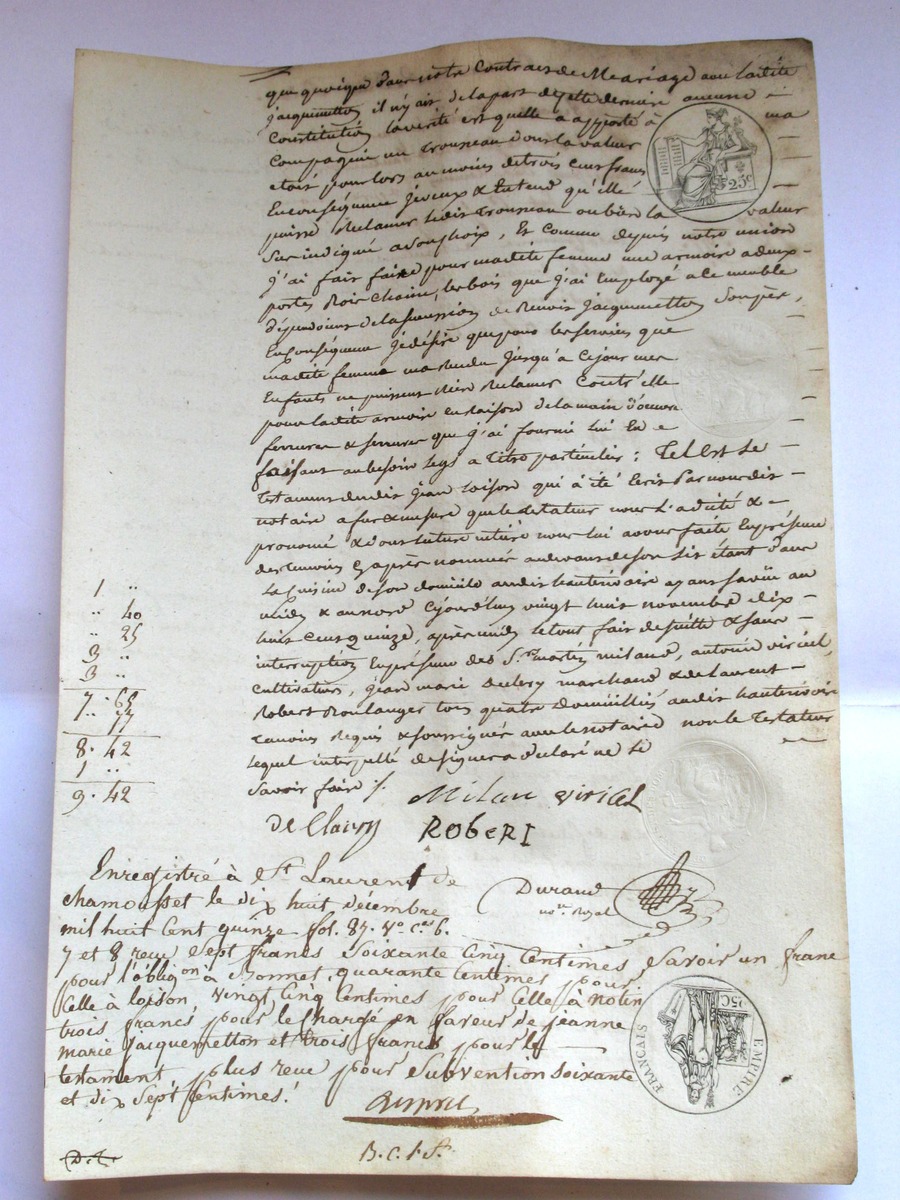 que quoique dans notre Contract de Mariage avec ladite
jacquemetton il n'y ait de la part de cette derniere aucune
Constitution la verité est quelle a apporté à ma
Compagnie un Trousseau dont la valeur
etait pour lors au moins de trois cens francs
En conséquence je veux & Entend qu'elle
puisse Reclamer ledit Trousseau ou bien la valeur
sus indiqué a son choix, Et comme depuis notre union
j'ai fait faire pour madite femme une armoire a deux
portes Bois chaine, les bois que j'ai Employé a ce meuble
dépendoient de la succession de Benoit Jacquemetton son père,
En Conséquence je désire que pour les services que
madite femme ma Rendu jusqu'à ce jour mes
Enfants ne puissent Rien Reclamer Contr'elle
pour ladite armoire en raison de la main d'œuvre
ferrures & serrures que j'ai fourni lui En
faisant au besoin legs a Titre particulier : Tel Est le
Testament dudit jean loison qui à été Ecrit Par nous dit
notaire a fur & mesure que le testateur nous l'a dicté &
prononcé & dont lecture entière nous lui avons faite En présence
des temoins cy après nommés au devant de son lit étant dans
la Cuisine de son domicile audit hauterivoire ayant
midy & au nord Cejourd'huy vingt huit novembre dix
huit Cent quinze, après midy le tout fait de suitte & sans
interruption En présence des Srs martin miland, antoine viricel,
Cultivateurs, jean marie declery marchand & de laurent
Robert Boulanger tous quatre domiciliés audit hauterivoire
temoins Requis & soussignés avec le notaire non le Testateur
lequel interpellé de signer a déclaré ne le
savoir faire /.
1 "
" 40
" 25
3 "
3 "
7 . 65
" . 77
8 . 42
1 "
9 . 42
Milan viricel
de Clairy ROBERT
Durand
nore. Royal
Enregistré à St Laurent de
chamousset le dix huit décembre
mil huit cent quinze fol. 87. Vo. Ces 6.
7 et 8 reçu Sept francs Soixante Cinq Centimes Savoir un franc
pour l'obligon à Bonnet, quarante Centimes pour
Celle à loison, vingt Cinq Centimes pour Celle à notin
trois francs pour le chargé en faveur de jeanne
marie jacquemetton et trois francs pour le
testament plus reçu pour Subvention soixante
et dix Sept Centimes.
B. C. 1. S.
D. T.
25C
EMPIRE FRANCAIS
25C